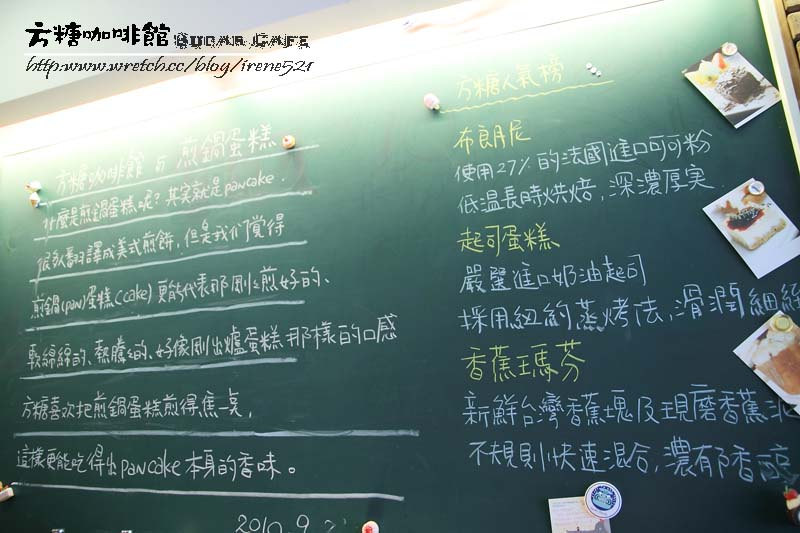 方糖咖啡館 SUGAR CAFE
http:www.wretch.cc/blog/irene521
方糖咖啡館 & 煎鍋蛋糕
什麼是煎鍋蛋糕呢?其實就是pancake.
很多人翻譯成美式煎餅,但是我們覺得
煎鍋(pan)蛋糕(cake)更能代表那剛煎好的、
軟綿綿的、熱騰騰的、好像剛出爐蛋糕那樣的口感
方糖喜欢把煎鍋蛋糕煎得焦一点,
這樣更能吃得出pancake本身的香味。
2010.9.
方糖人氣榜
布朗尼
使用27%的法國進口可可粉
低温長時烘焙,深濃厚実
起司蛋糕
嚴選進口奶油起司
採用紐約蒸烤法,滑潤細緻
香蕉瑪芬
新鮮台灣香蕉塊及現磨香蕉泥
不規則快速混合,濃郁香醇